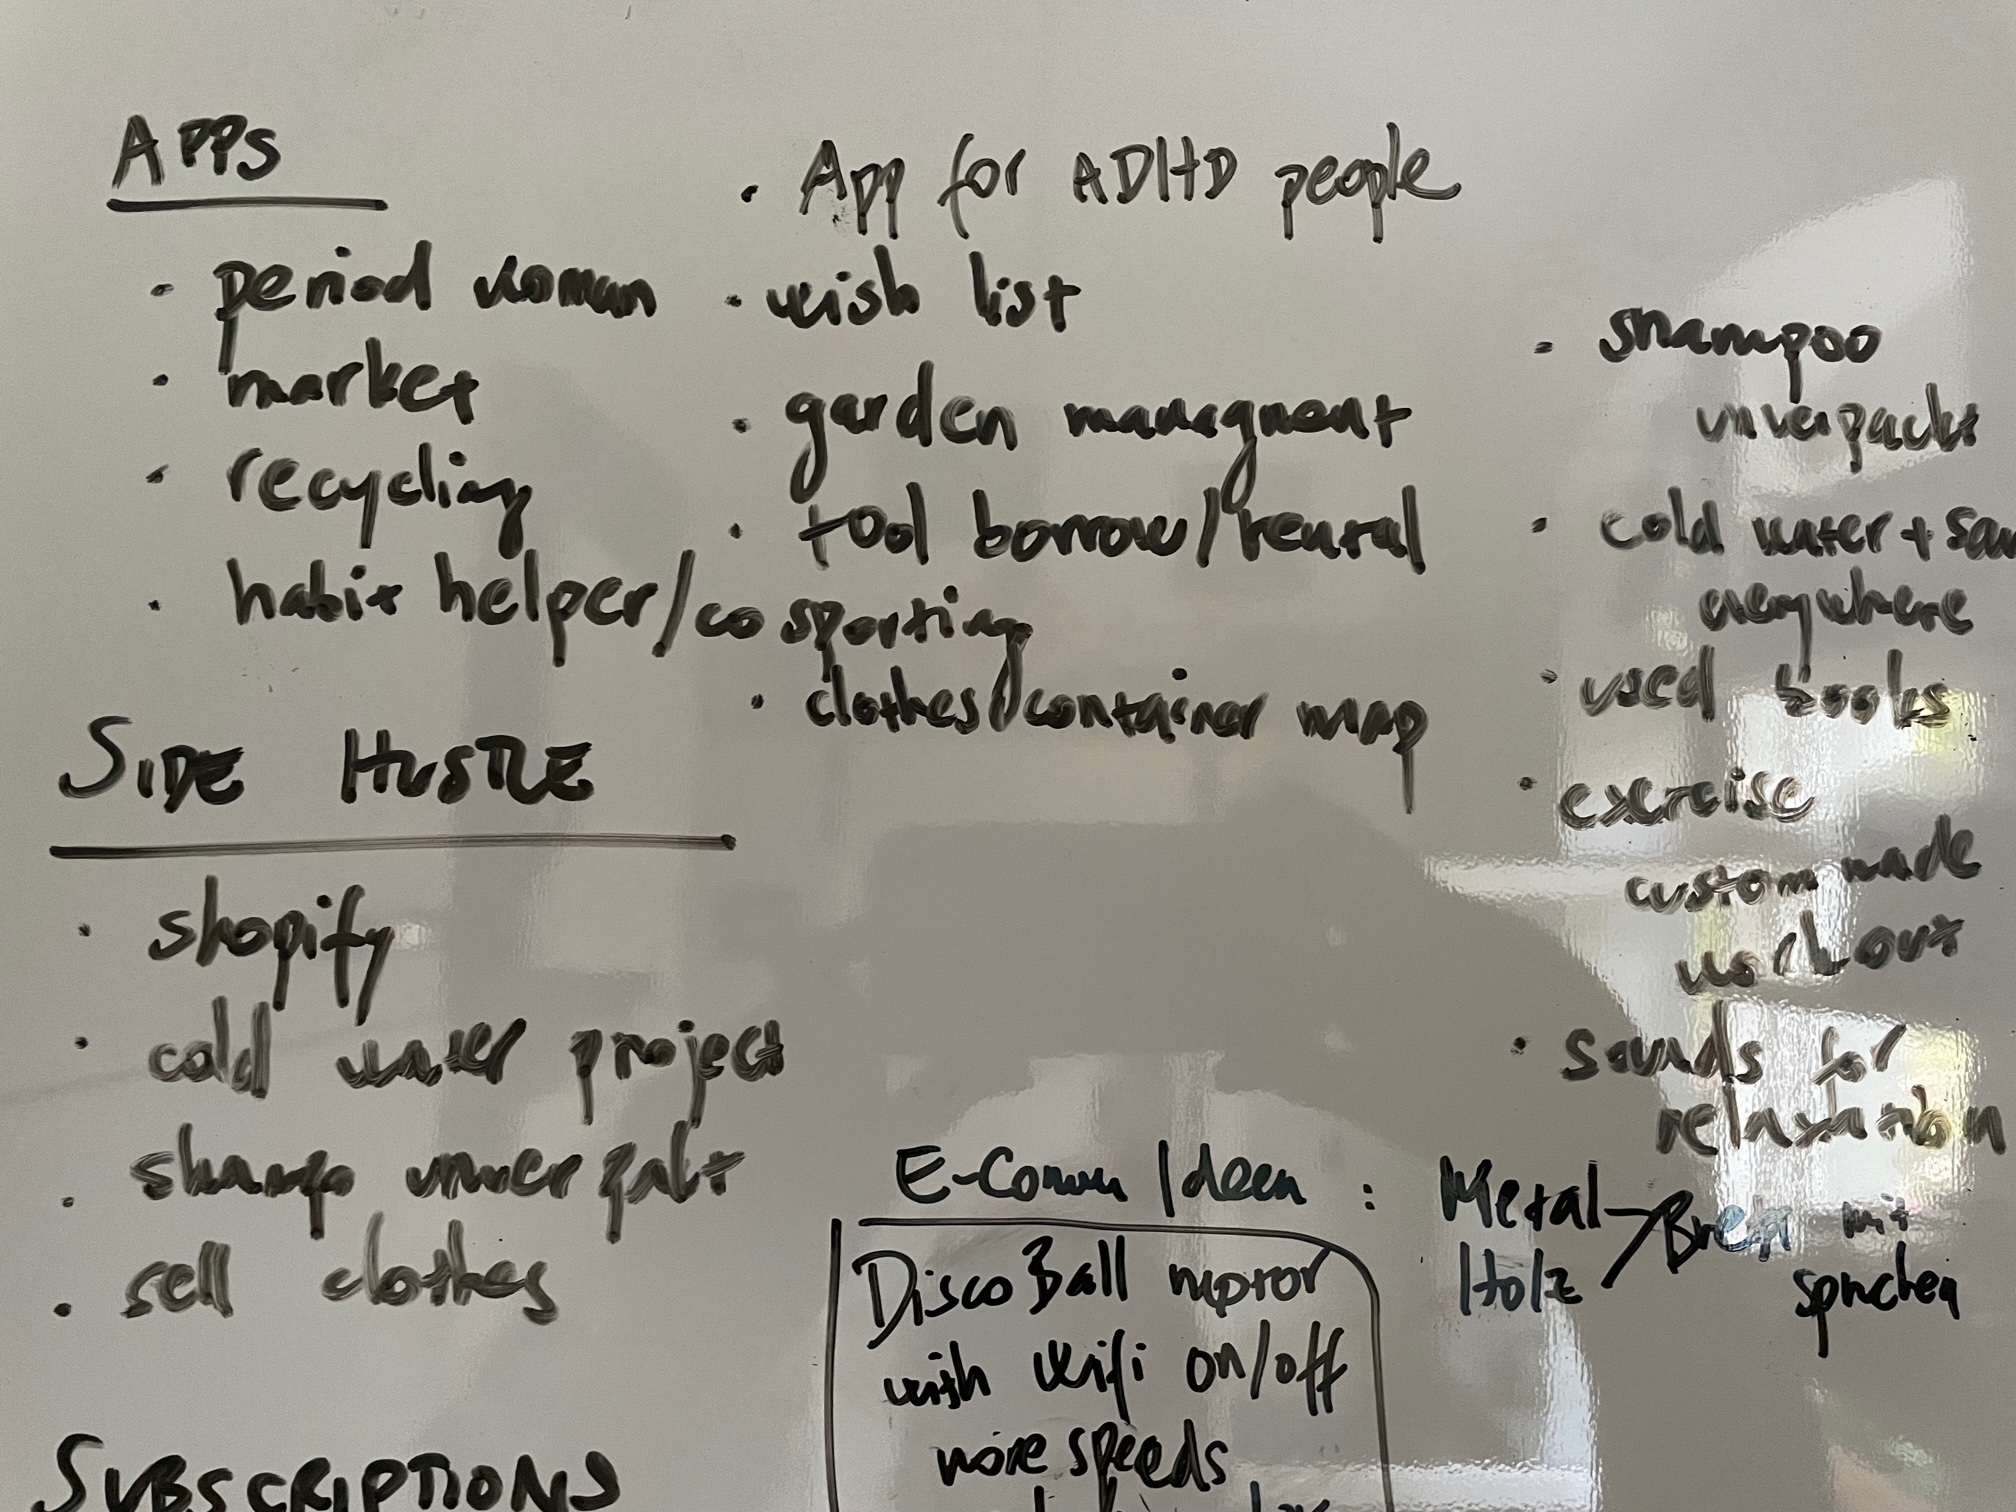 APPS
• period woman
• market
• recycling
• habit helper/co sporting
• App for ADHD people
• wish list
• garden managment
• tool borrow/rental
• clothes/container map
• shampoo
unverpackt
• cold water + sau
everywhere
• used books
• exercise
custom made
workout
• sounds for
relaxtation
SIDE HUSTLE
• shopify
• cold water project
• shampo
• sell clothes
E-Comm Ideen :
Metal
Holz
mit
sprüchen
Disco Ball motor
with Wifi on/off
more speeds
SUBSCRIPTIONS